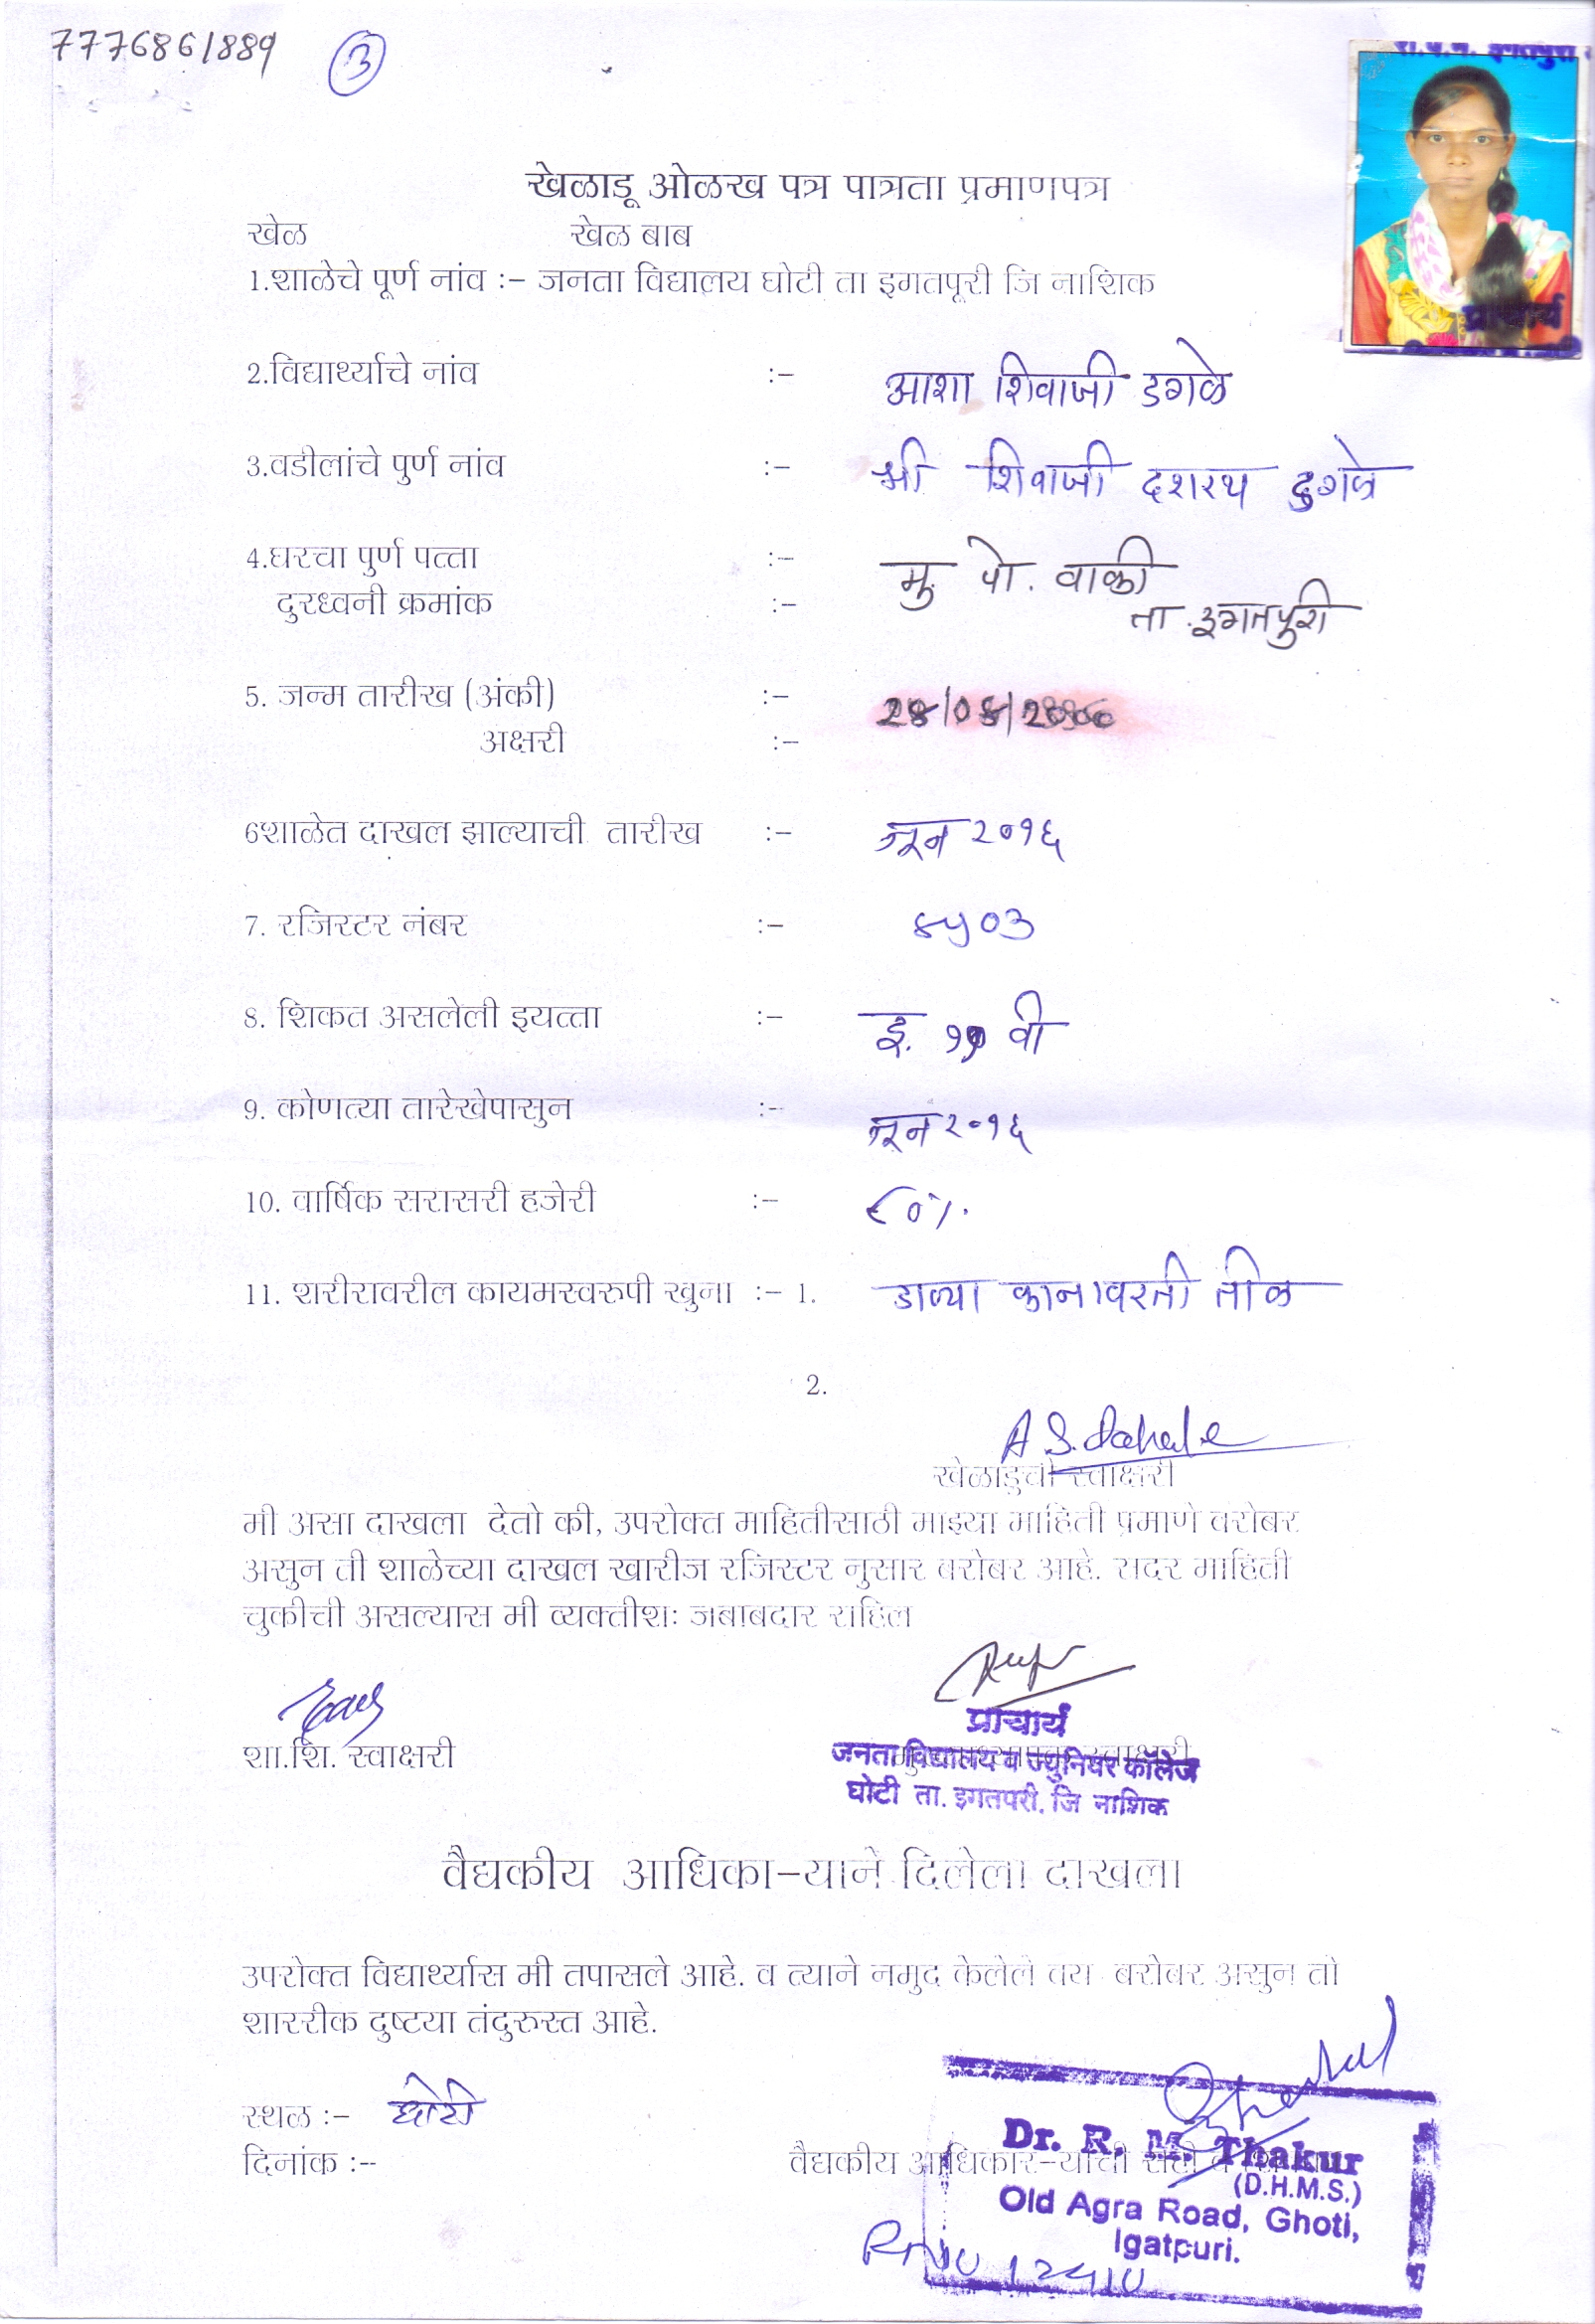 7776861889 3
रा.प.म. इगतपुरी
खेळाडू ओळख पत्र पात्रता प्रमाणपत्र
खेळ खेळ बाब
1.शाळेचे पूर्ण नांव :– जनता विद्यालय घोटी ता इगतपूरी जि नाशिक
प्राचार्य
2.विद्यार्थ्याचे नांव :– आशा शिवाजी डगळे
3.वडीलांचे पुर्ण नांव :– श्री शिवाजी दशरथ डगळे
4.घरचा पुर्ण पत्ता :– मु. पो. वाळी
दुरध्वनी क्रमांक :– ता. इगतपुरी
5. जन्म तारीख (अंकी) :–
अक्षरी :–
6शाळेत दाखल झाल्याची तारीख :– जून २०१६
7. रजिस्टर नंबर :– ४५०३
8. शिकत असलेली इयत्ता :– इ. ११ वी
9. कोणत्या तारेखेपासुन :– जून २०१६
10. वार्षिक सरासरी हजेरी :– ८०%
11. शरीरावरील कायमस्वरुपी खुना :– 1. डाव्या कानावरती तीळ
2.
A S. Dahale
खेळाडुची स्वाक्षरी
मी असा दाखला देतो की, उपरोक्त माहितीसाठी माझ्या माहिती प्रमाणे बरोबर
असुन ती शाळेच्या दाखल खारीज रजिस्टर नुसार बरोबर आहे. सदर माहिती
चुकीची असल्यास मी व्यक्तीशः जबाबदार राहिल
प्राचार्य
शा.शि. स्वाक्षरी स्वाक्षरी
जनता विद्यालय व ज्युनियर कॉलेज
घोटी ता. इगतपरी, जि नाशिक
वैद्यकीय आधिका–याने दिलेला दाखला
उपरोक्त विद्यार्थ्यास मी तपासले आहे. व त्याने नमुद केलेले वय बरोबर असुन तो
शाररीक दुष्टया तंदुरुस्त आहे.
स्थळ :– घोटी
दिनांक :–- वैद्यकीय आधिकार–याची सही व
Dr. R. M. Thakur
(D.H.M.S.)
Old Agra Road, Ghoti,
Igatpuri.